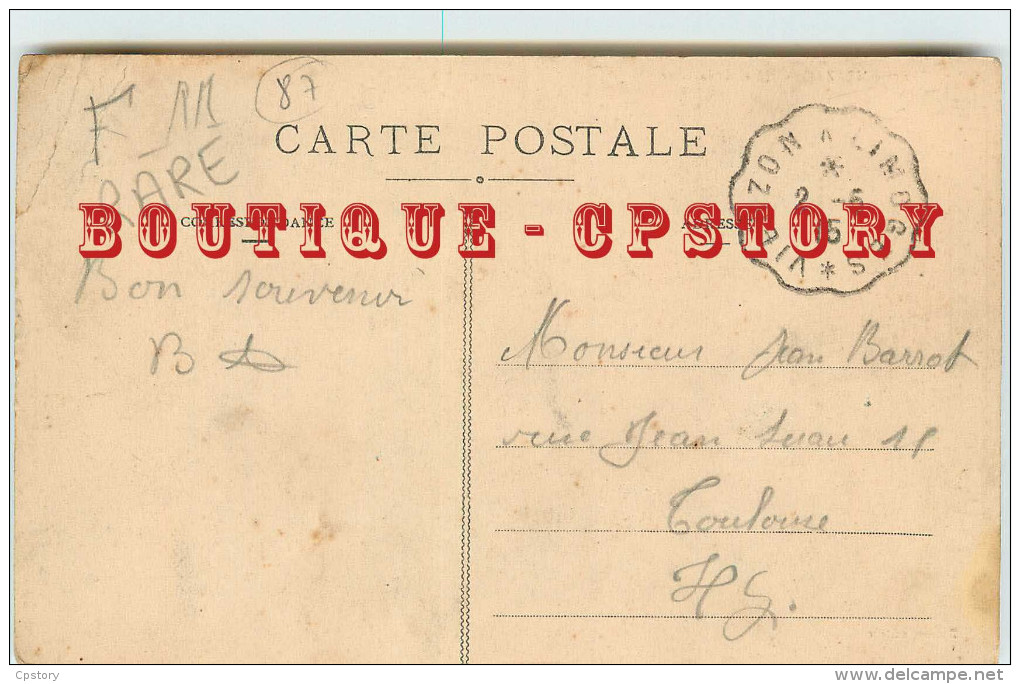 F 11
87
RARE
CARTE POSTALE
VIERZON A LIMOGES
2 - 6
15
CORRESPONDANCE
ADRESSE
BOUTIQUE - CPSTORY
Bon souvenir
B
Monsieur Jean Barrot
rue Jean
Toulouse
Hg.
Cpstory
delcampe.net